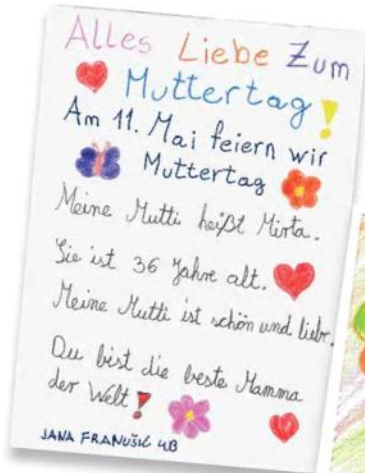 Alles Liebe Zum
Muttertag!
Am 11. Mai feiern wir
Muttertag
Meine Mutti heißt Mirta.
Sie ist 36 Jahre alt.
Meine Mutti ist schön und liebe.
Du bist die beste Mamma
der Welt!
JANA FRANUŠIĆ 4.B